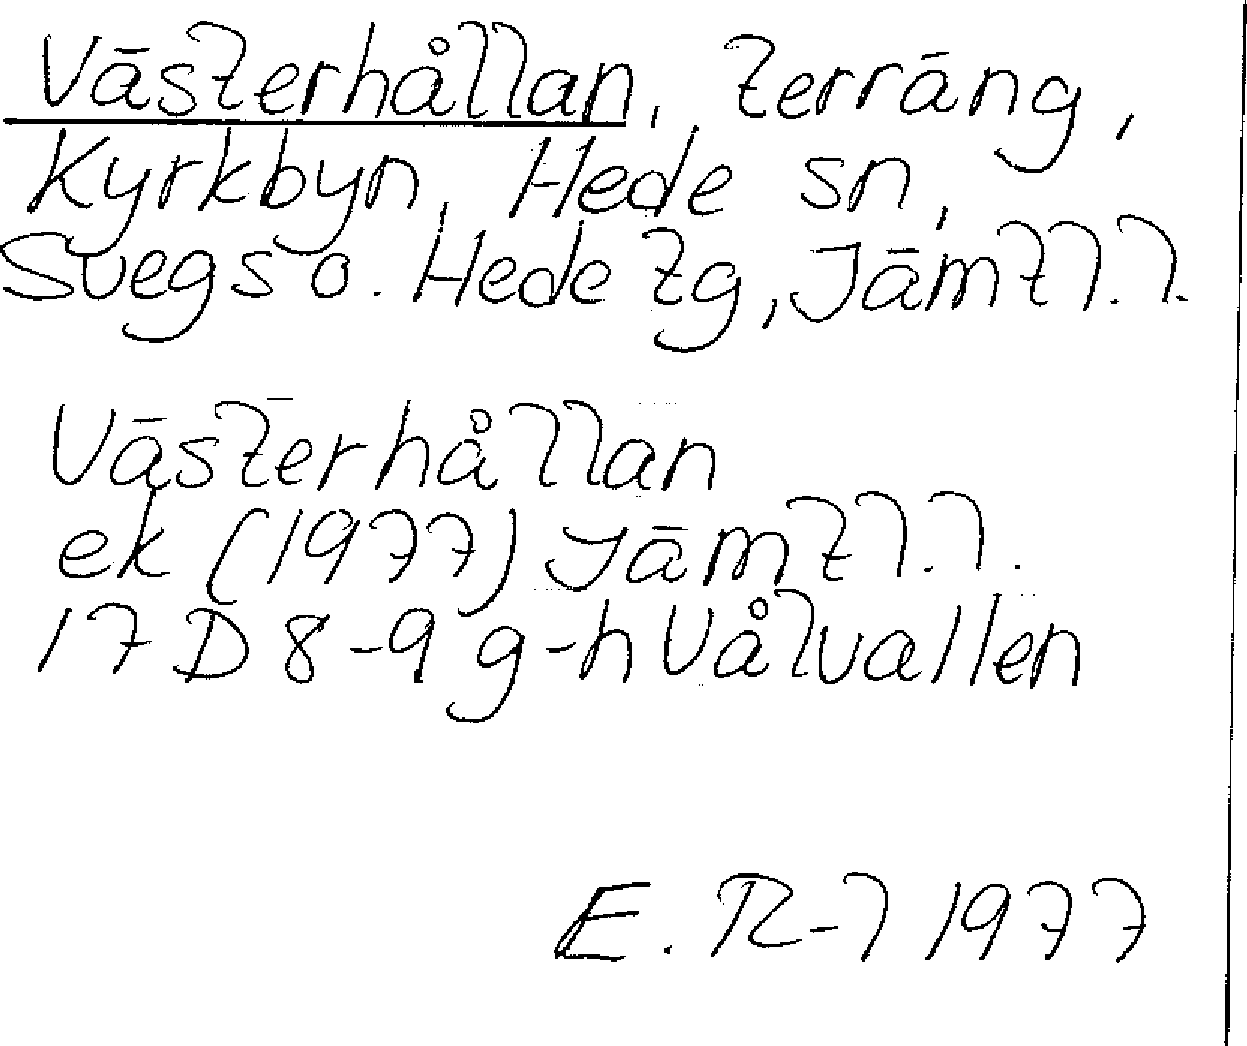 Västerhållan, terräng,
Kyrkbyn, Hede sn,
Svegs o. Hede tg, Jämtl.l.
Västerhållan
ek (1977) Jämtl.l.
17D 8-9 g-h Vålvallen
E. R-l 1977